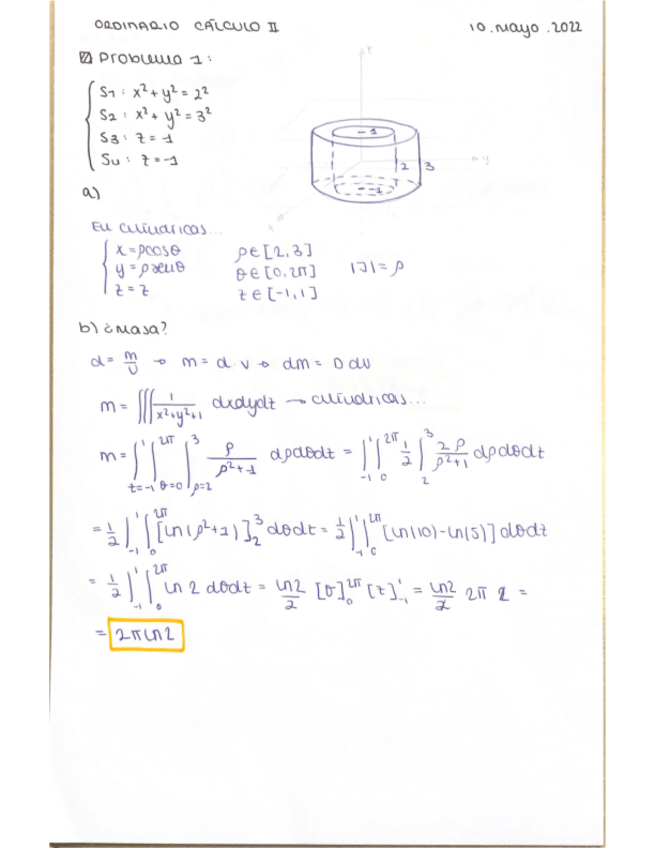 ORDINARIO CÁLCULO II 10.mayo.2022
Problema 1:
S1: x² + y² = 2²
S2: x² + y² = 3²
S3: z = 1
S4: z = -1
z
1
y
2 3
-1
x
a)
En cilíndricas...
x = ρcosθ ρ∈[2,3]
y = ρsenθ θ∈[0,2π] |J| = ρ
z = z z∈[-1,1]
b) ¿masa?
d = m/v → m = d·v → dm = D dv
m = ∭ 1/(x²+y²+1) dxdydz → cilíndricas...
m = ∫_{z=-1}^{1} ∫_{θ=0}^{2π} ∫_{ρ=2}^{3} ρ/(ρ²+1) dρdθdz = ∫_{-1}^{1} ∫_{0}^{2π} 1/2 ∫_{2}^{3} 2ρ/(ρ²+1) dρdθdz
= 1/2 ∫_{-1}^{1} ∫_{0}^{2π} [ln(ρ²+1)]_{2}^{3} dθdz = 1/2 ∫_{-1}^{1} ∫_{0}^{2π} [ln(10)-ln(5)] dθdz
= 1/2 ∫_{-1}^{1} ∫_{0}^{2π} ln 2 dθdz = ln2/2 [θ]_{0}^{2π} [z]_{-1}^{1} = ln2/2 2π 2 =
= 2π ln 2